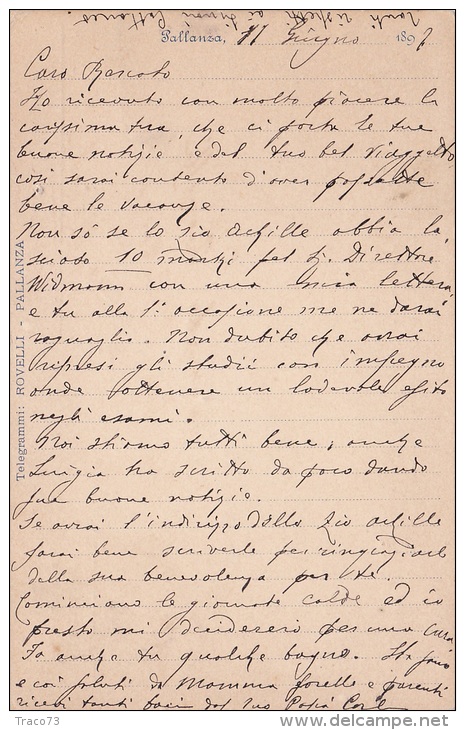 Tanti rispetti
ai Signori Cattaneo.
Pallanza, 11 Giugno 189
Caro
Ho ricevuto con molto piacere la
carissima tua, che ci porta le tue
buone notizie e del tuo bel viaggetto
così sarai contento d'aver passate
bene le vacanze.
Non só se lo zio Achille abbia la
sciato 10 marchi pel Sig. Direttore
Widmann con una mia lettera,
e tu alla 1ª occasione me ne darai
ragguaglio. Non dubito che avrai
ripresi gli studii con impegno
onde ottenere un lodevole esito
negli esami.
Noi stiamo tutti bene, anche
Luigia ha scritto da poco dando
sue buone notizie.
Se avrai l'indirizzo dello Zio Achille
farai bene scriverle per ringraziarle
della sua benevolenza per te.
Cominciano le giornate calde ed io
presto mi deciderò per una cura
Fa anche tu qualche bagno. Sta sano
e coi saluti di Mamma sorelle e parenti
ricevi tanti baci dal tuo Papà
Telegrammi: ROVELLI - PALLANZA
© Traco73
www.delcampe.net